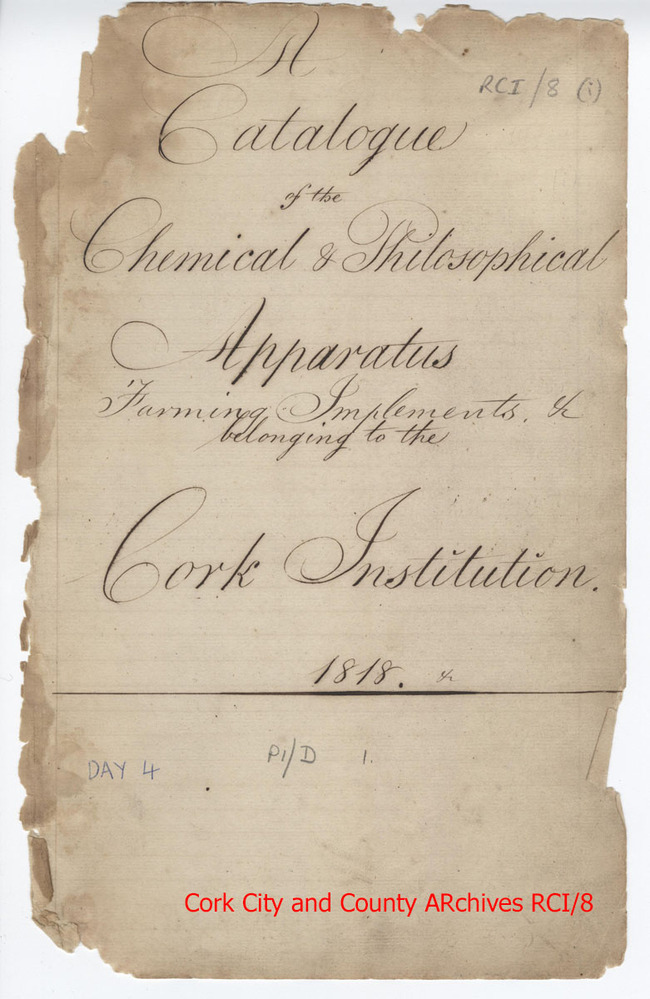 A
RCI/8 (i)
Catalogue
of the
Chemical & Philosophical
Apparatus
Farming Implements, &c
belonging to the
Cork Institution.
1818. &c
DAY 4
P1/D 1.
Cork City and County ARchives RCI/8